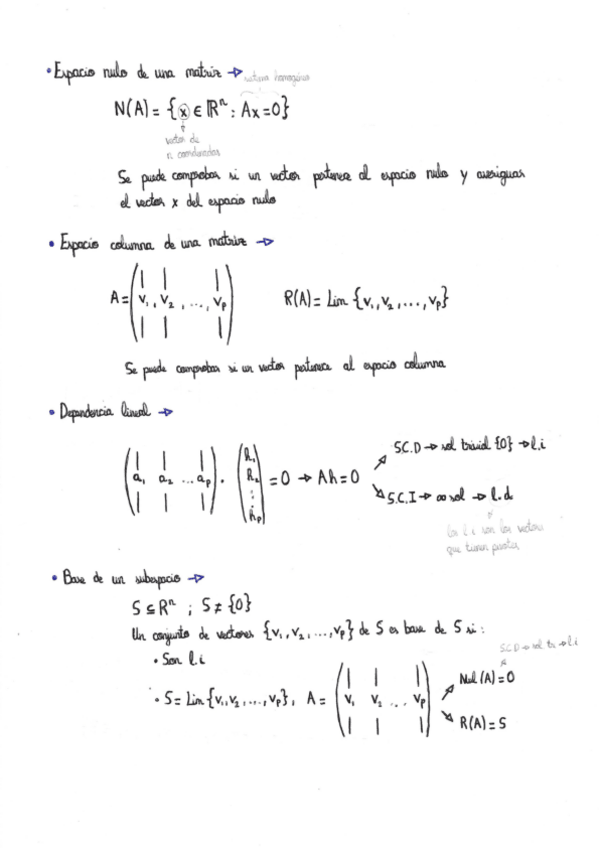 • Espacio nulo de una matriz → sistema homogéneo
N(A) = {x ∈ ℝⁿ : Ax=0}
vector de
n coordenadas
Se puede comprobar si un vector pertenece al espacio nulo y averiguar
el vector x del espacio nulo
• Espacio columna de una matriz →
A = (v₁, v₂, ..., vₚ) R(A) = Lin {v₁, v₂, ..., vₚ}
Se puede comprobar si un vector pertenece al espacio columna
• Dependencia lineal →
S.C.D → sol trivial {0} → l.i
(a₁ a₂ ... aₚ) · (h₁ h₂ ⋮ hₚ) = 0 → Ah = 0
S.C.I → ∞ sol → l.d
los l.i son los vectores
que tienen pivote
• Base de un subespacio →
S ⊆ ℝⁿ ; S ≠ {0}
Un conjunto de vectores {v₁, v₂, ..., vₚ} de S es base de S si:
S.C.D → sol tr → l.i
• Son l.i
Nul(A) = 0
• S = Lin {v₁, v₂, ..., vₚ}, A = (v₁ v₂ ... vₚ)
R(A) = S